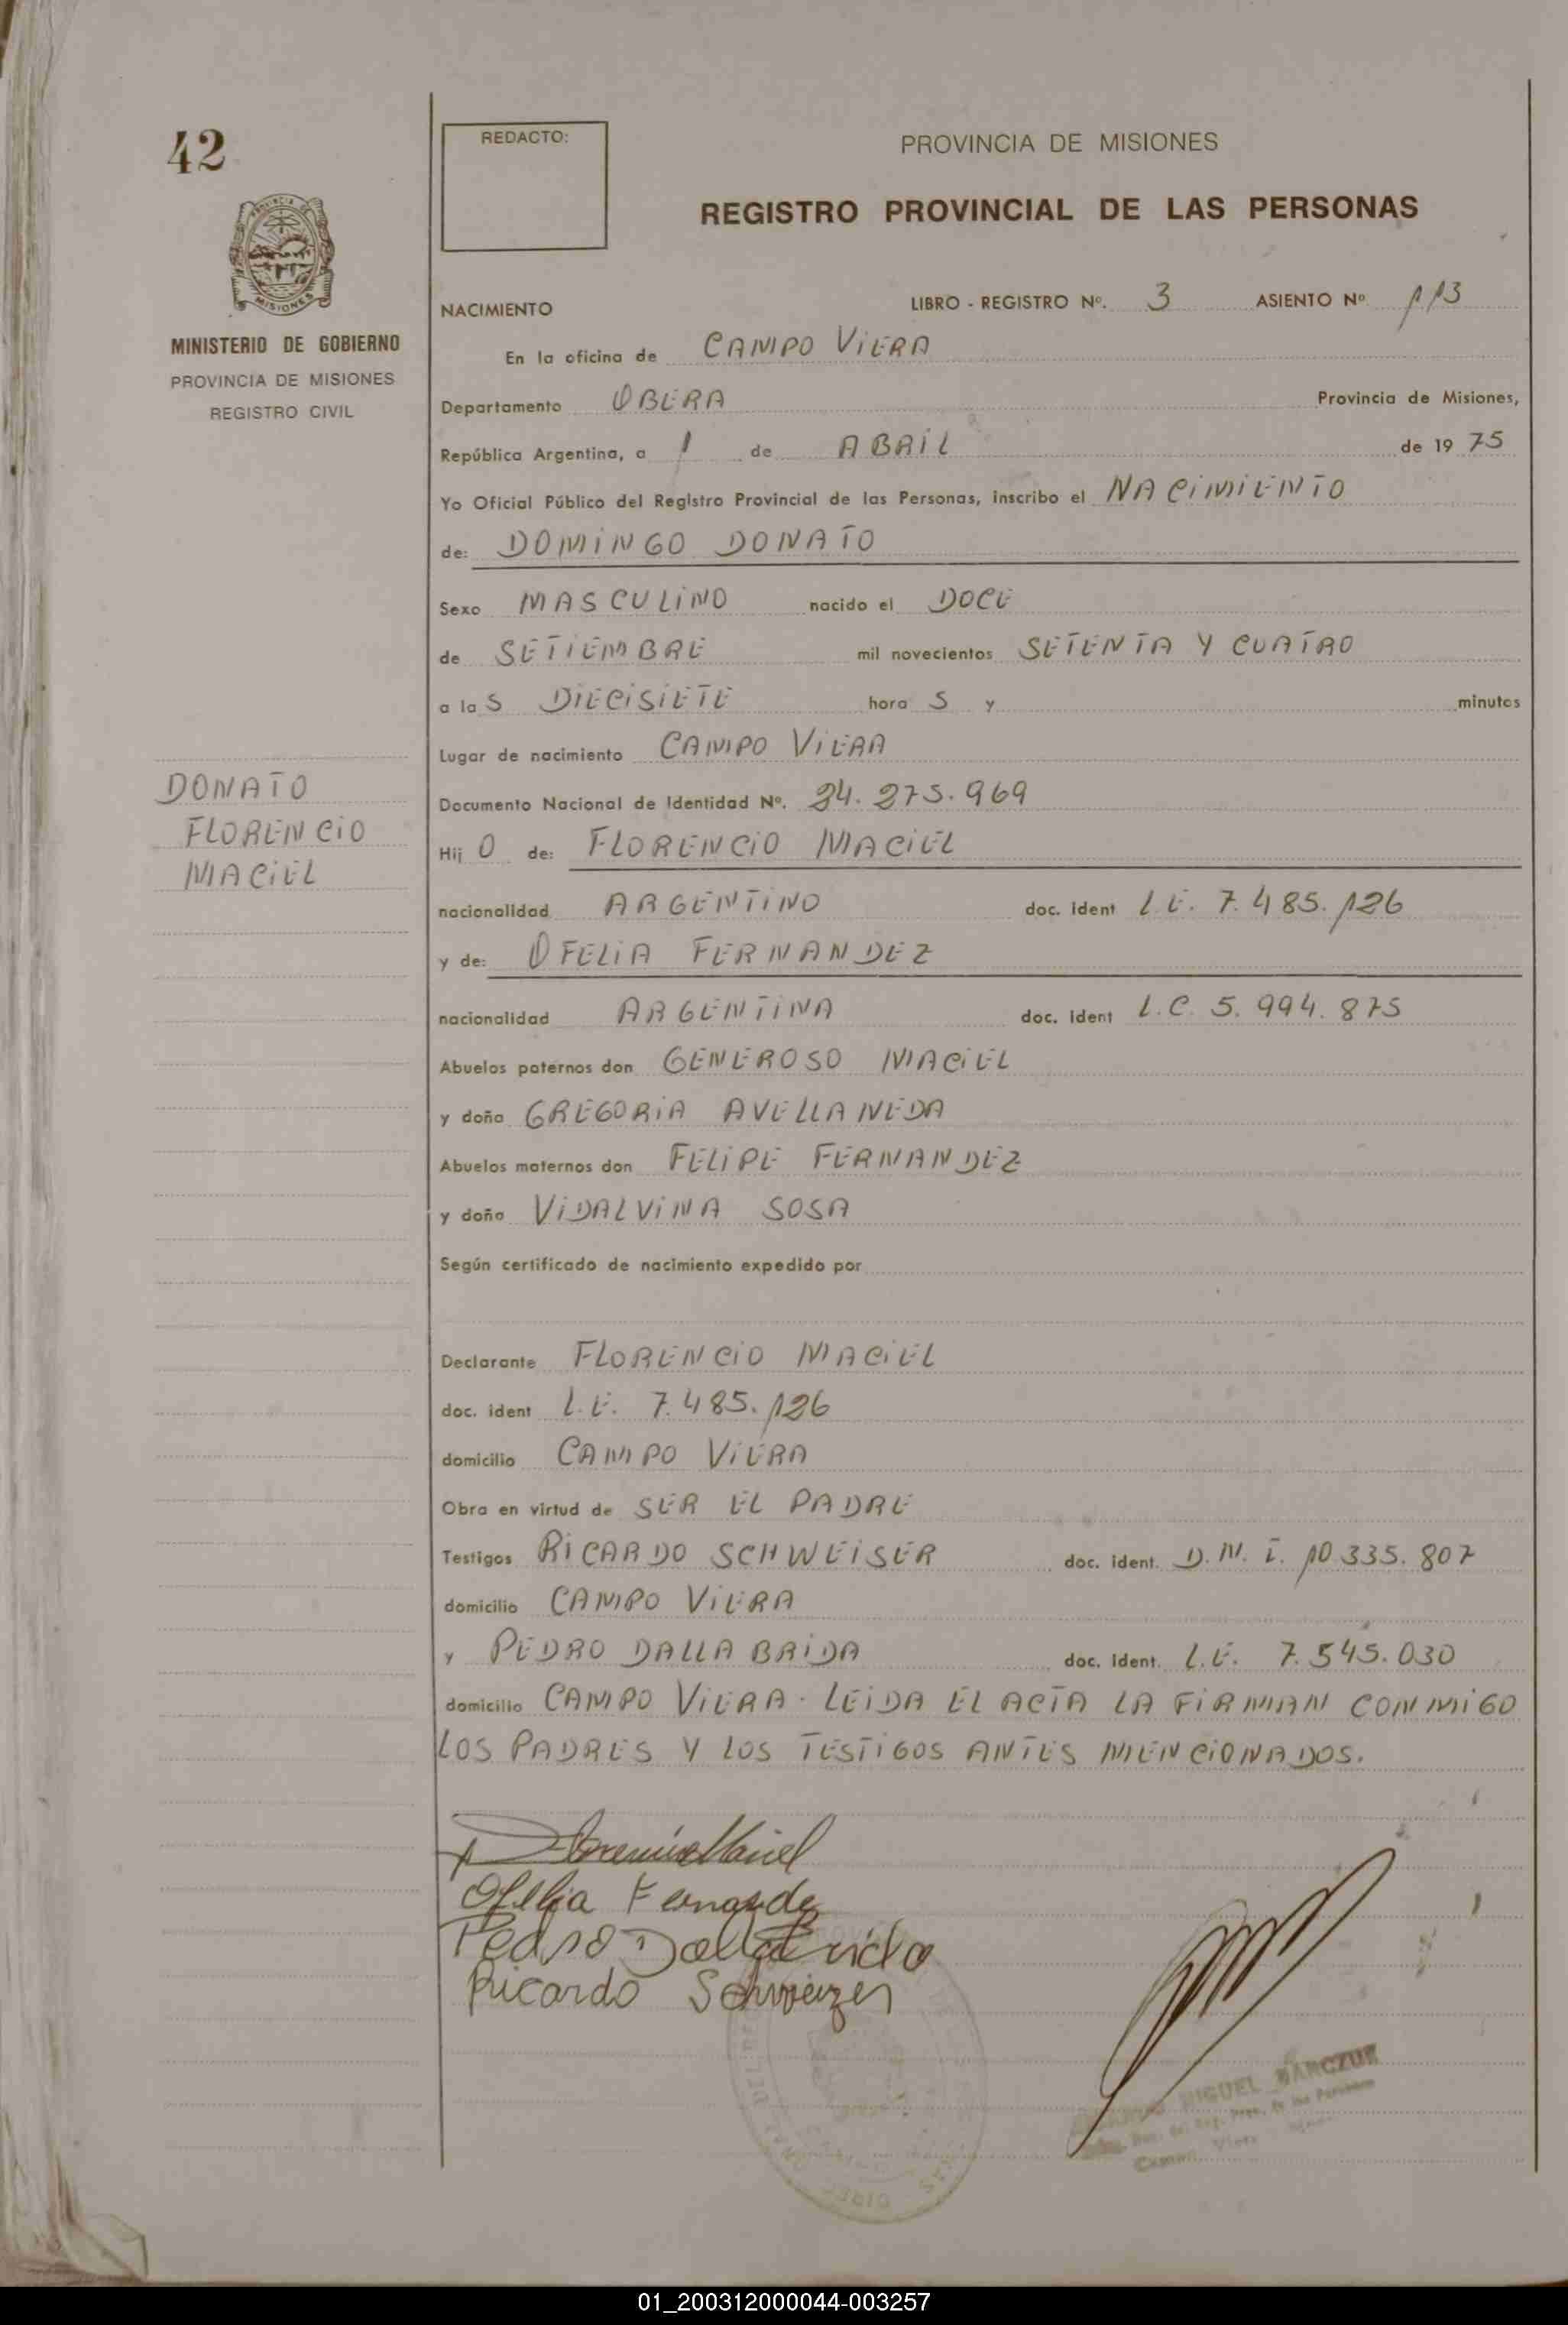 42
REDACTO:
PROVINCIA DE MISIONES
REGISTRO PROVINCIAL DE LAS PERSONAS
MISIONES
MINISTERIO DE GOBIERNO
PROVINCIA DE MISIONES
REGISTRO CIVIL
NACIMIENTO LIBRO - REGISTRO Nº. 3 ASIENTO Nº 113
En la oficina de CAMPO VIERA
Departamento OBERA Provincia de Misiones,
República Argentina, a 1 de ABRIL de 19 75
Yo Oficial Público del Registro Provincial de las Personas, inscribo el NACIMIENTO
de: DOMINGO DONATO
Sexo MASCULINO nacido el DOCE
de SETIEMBRE mil novecientos SETENTA Y CUATRO
a las DIECISIETE horas y minutos
Lugar de nacimiento CAMPO VIERA
DONATO
FLORENCIO
MACIEL
Documento Nacional de Identidad Nº. 24.275.969
Hijo de: FLORENCIO MACIEL
nacionalidad ARGENTINO doc. ident L.E. 7.485.126
y de: OFELIA FERNANDEZ
nacionalidad ARGENTINA doc. ident L.C. 5.994.875
Abuelos paternos don GENEROSO MACIEL
y doña GREGORIA AVELLANEDA
Abuelos maternos don FELIPE FERNANDEZ
y doña VIDALVINA SOSA
Según certificado de nacimiento expedido por
Declarante FLORENCIO MACIEL
doc. ident L.E. 7.485.126
domicilio CAMPO VIERA
Obra en virtud de SER EL PADRE
Testigos RICARDO SCHWEISER doc. ident. D.N.I. 10.335.807
domicilio CAMPO VIERA
y PEDRO DALLA BRIDA doc. ident. L.E. 7.545.030
domicilio CAMPO VIERA. LEIDA EL ACTA LA FIRMAN CONMIGO
LOS PADRES Y LOS TESTIGOS ANTES MENCIONADOS.
Florencio Maciel
Ofelia Fernande
Pedro Dalla Brida
Ricardo Schweizer
MIGUEL
01_200312000044-003257